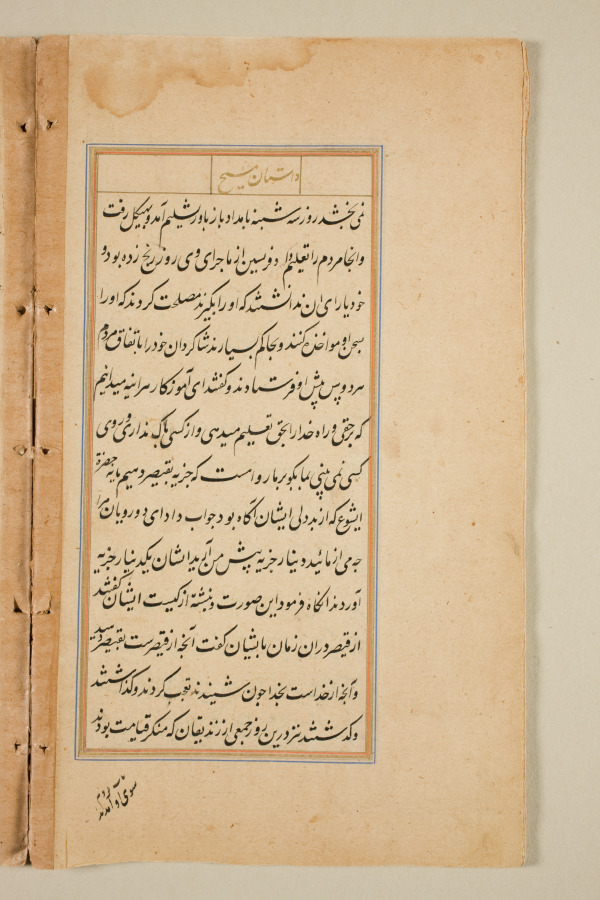 داستان مسیح
نمی بخشد روز سه شنبه بامداد باز باورشلیم آمد و بهیکل رفت
و انجا مردم را تعلیم داد فریسین از ماجرای وی روز رنج زده بود و
خود یارای ان نداشتند که او را بگیرند مصلحت کردند که او را
بسخن او مواخذه کنند و بحاکم بسپارند شاکردان خود را باتفاق مردم
هردوس پیش او فرستادند و کفتند ای آموزکار هراینه میدانیم
که برحقی و راه خدا را بحق تعلیم میدهی و از کسی باک نداری و روی
کسی نمی بینی بما بکو بر ما رواست که جزیه بقیصر دهیم یا نه حضرة
ایشوع که از بددلی ایشان آگاه بود جواب داد ای دورویان مرا
چه می ازمائید دینار جزیه پیش من آرید ایشان یکدینار جزیه
آوردند انکاه فرمود این صورت و نبشته از کیست ایشان کفتند
از قیصر دران زمان بایشان کفت آنچه از قیصرست بقیصر دهید
و آنچه از خداست بخدا چون شنیدند تعجب کردند و کذاشتند
و کذشتند نیز درین روز جمعی از زندیقان که منکر قیامت بودند
سوی او آمدند